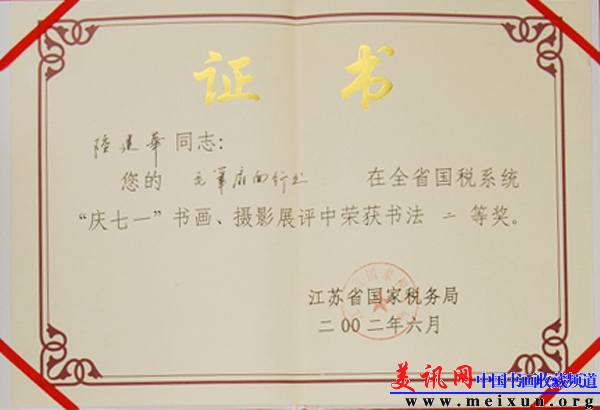 证书
陆建华同志:
您的 在全省国税系统
“庆七一”书画、摄影展评中荣获书法 二 等奖。
江苏省国家税务局
二00二年六月
美讯网中国书画收藏频道
www.meixun.org